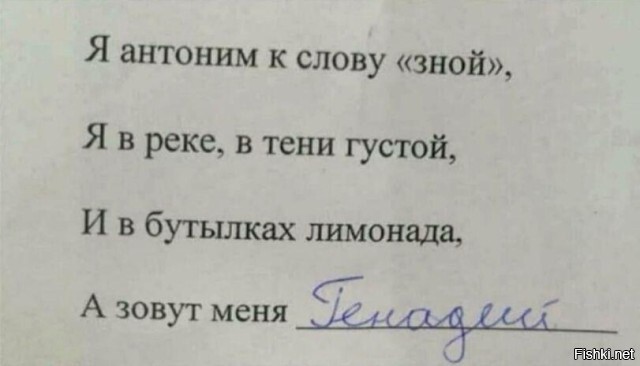 Я антоним к слову «зной»,
Я в реке, в тени густой,
И в бутылках лимонада,
А зовут меня Генадий
Fishki.net